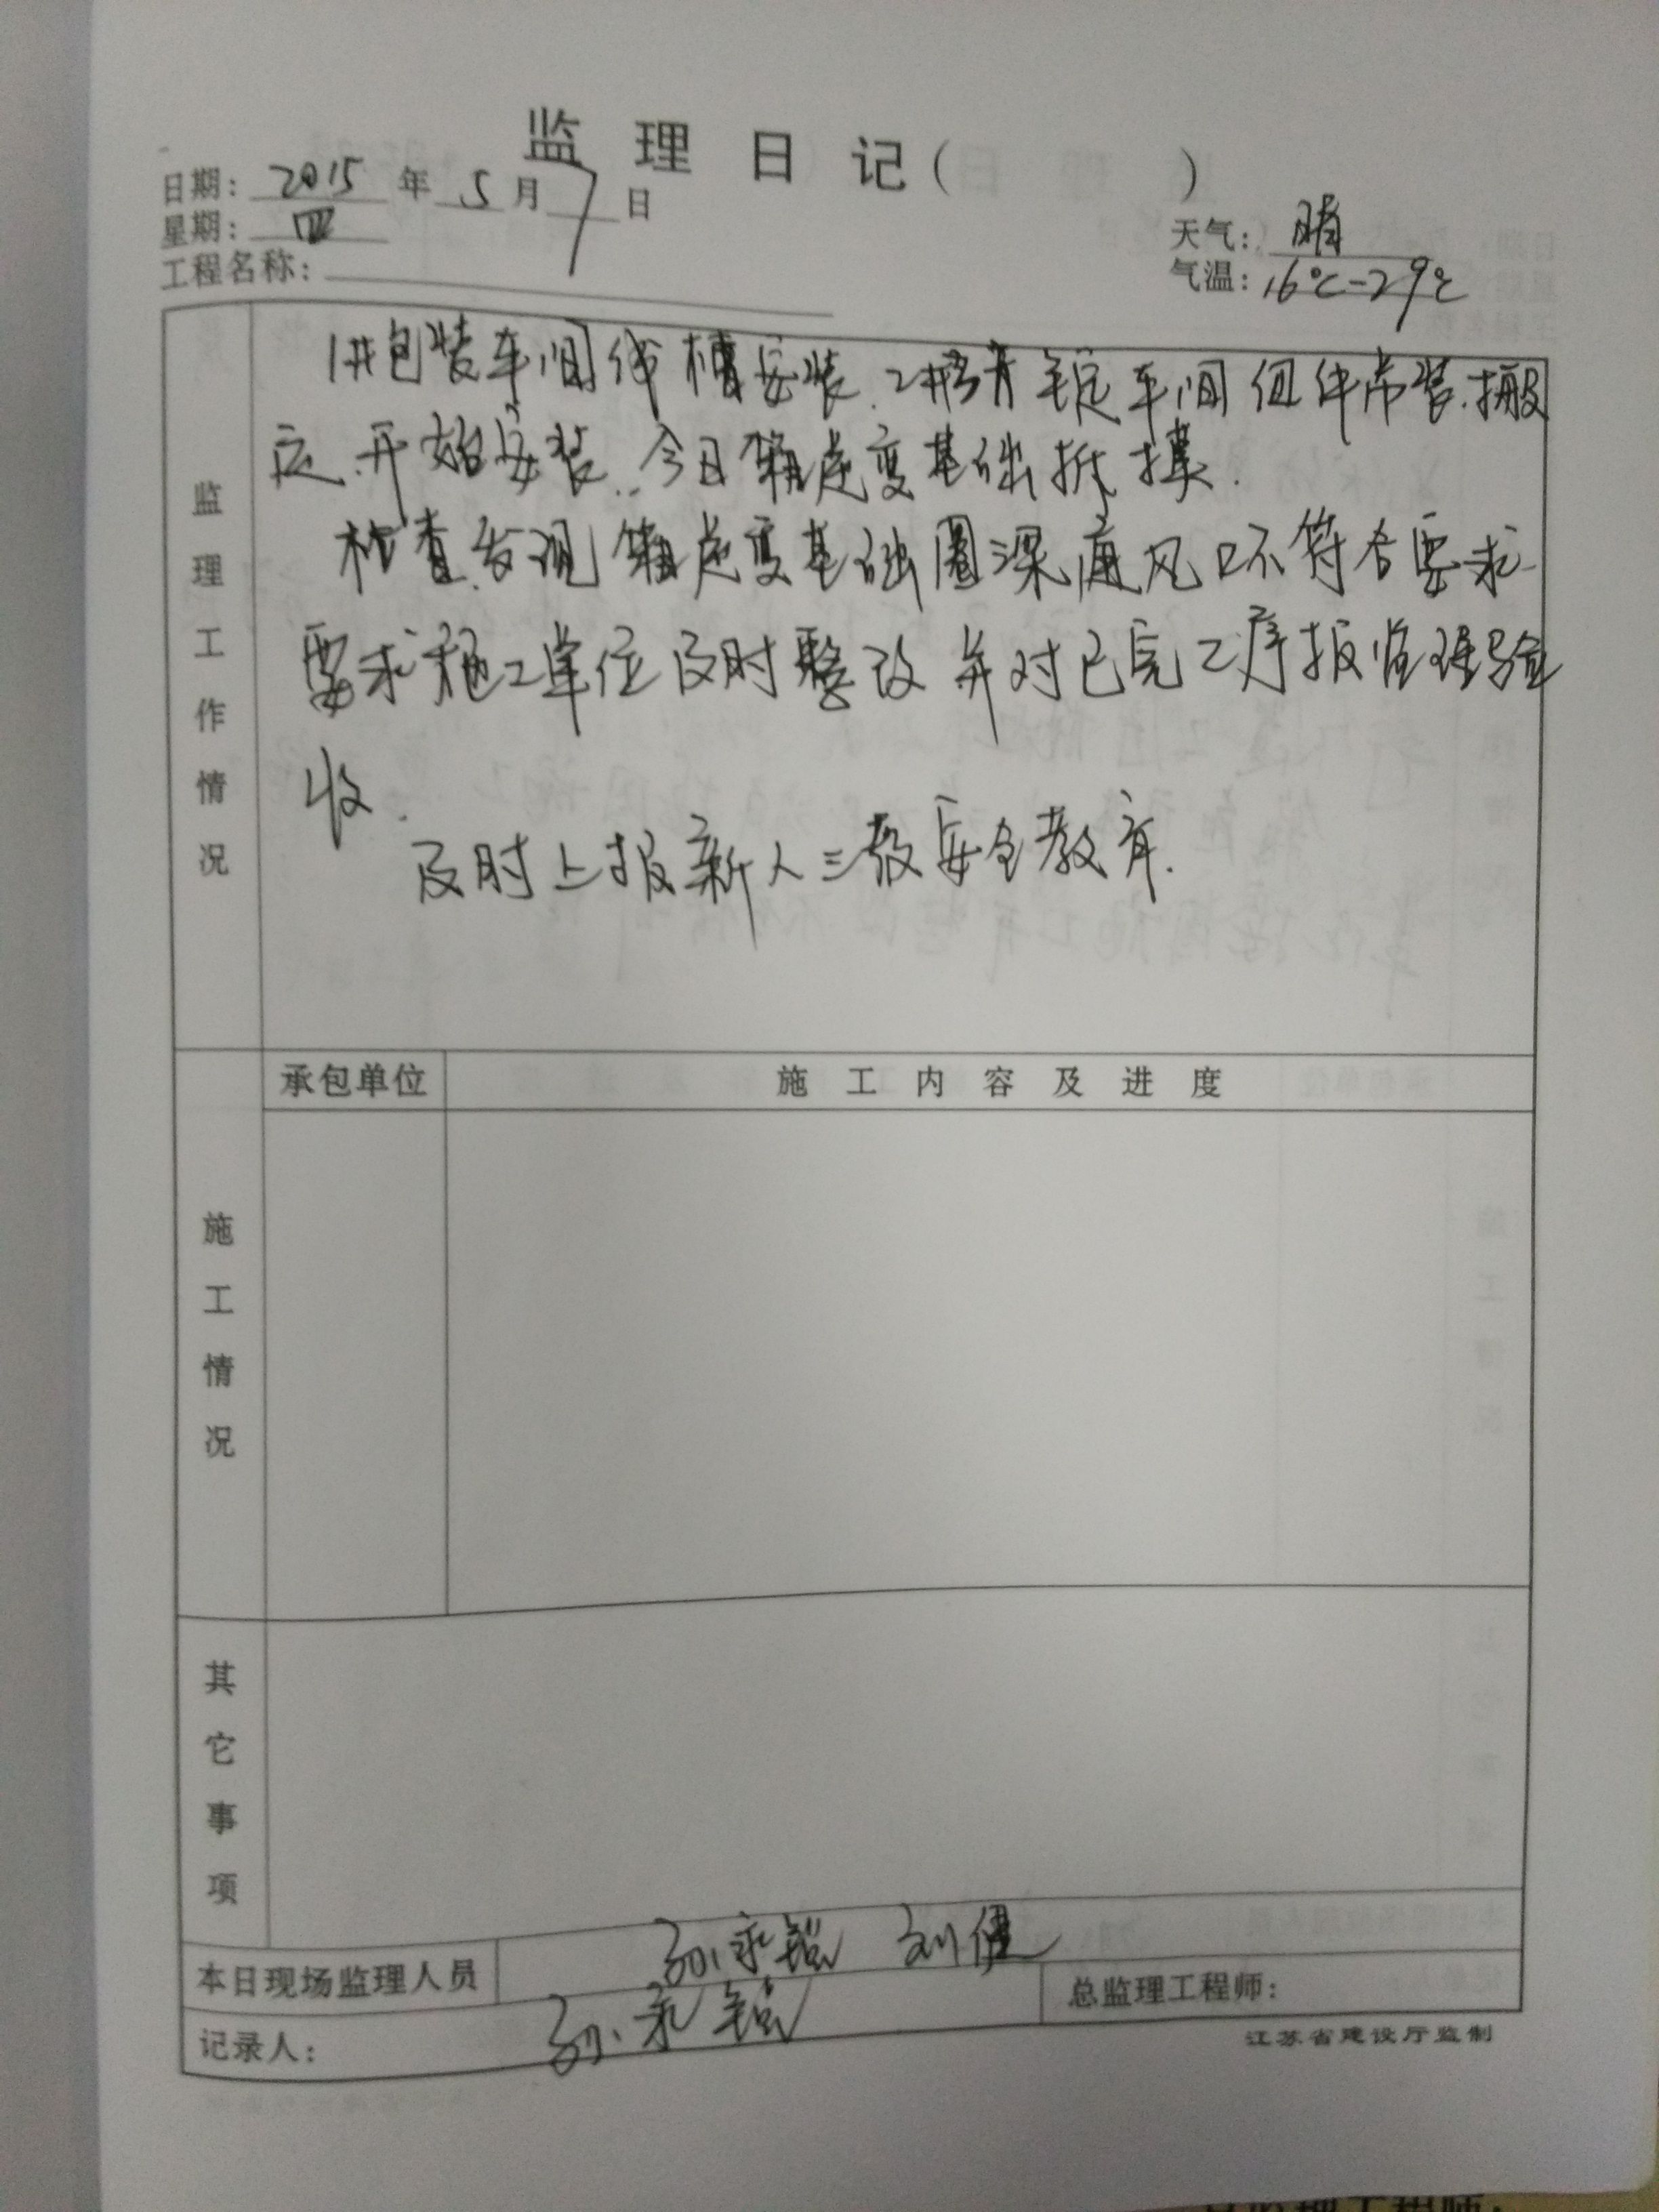 监理日记( )
日期: 2015 年 5 月 7 日
星期: 四
天气: 晴
工程名称:
气温: 16℃-29℃
监理工作情况
1#包装车间线槽安装. 2# 车间组件吊装.搬
运.开始安装. 今日箱逆变基础拆模.
检查发现箱逆变基础圈梁通风口不符合要求.
要求施工单位及时整改并对已完工序报监理验
收.
及时上报新人三级安全教育.
承包单位 施工内容及进度
施工情况
其它事项
本日现场监理人员 孙永 刘健
总监理工程师:
记录人: 孙永
江苏省建设厅监制